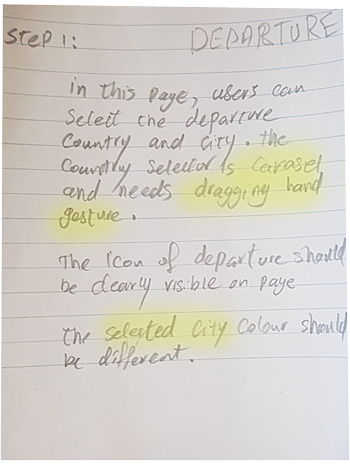 Step 1: DEPARTURE
in this page, users can
Select the departure
Country and city. the
Country Selector is Carasel
and needs dragging hand
gasture.
The icon of departure should
be clearly visible on page
The selected City Colour should
be different.